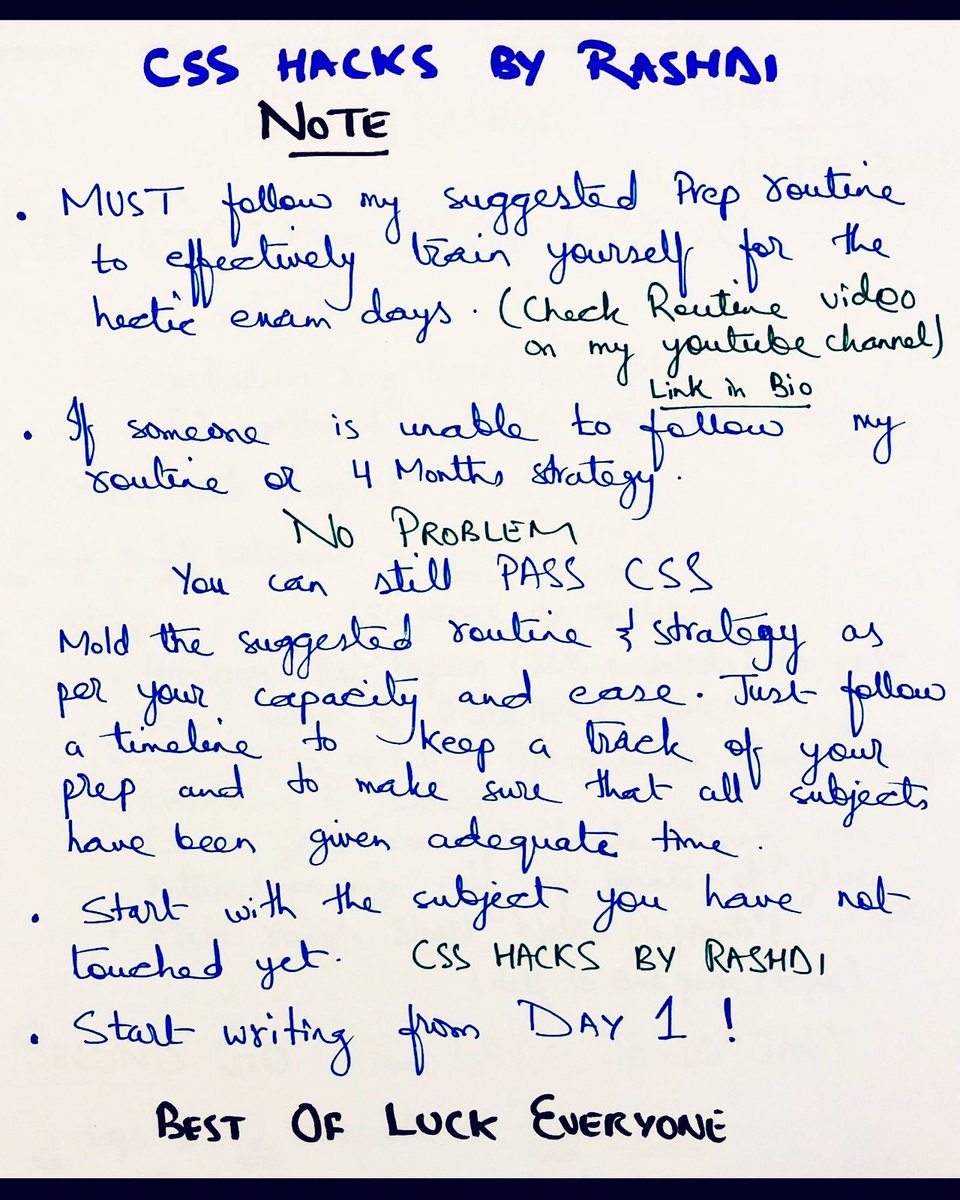 CSS HACKS BY RASHDI
NOTE
• MUST follow my suggested Prep routine
to effectively train yourself for the
hectic exam days. (Check Routine video
on my youtube channel)
Link in Bio
• If someone is unable to follow my
routine or 4 Months strategy.
NO PROBLEM
You can still PASS CSS
Mold the suggested routine & strategy as
per your capacity and ease. Just follow
a timeline to keep a track of your
prep and to make sure that all subjects
have been given adequate time.
• Start with the subject you have not
touched yet. CSS HACKS BY RASHDI
• Start writing from DAY 1 !
BEST OF LUCK EVERYONE